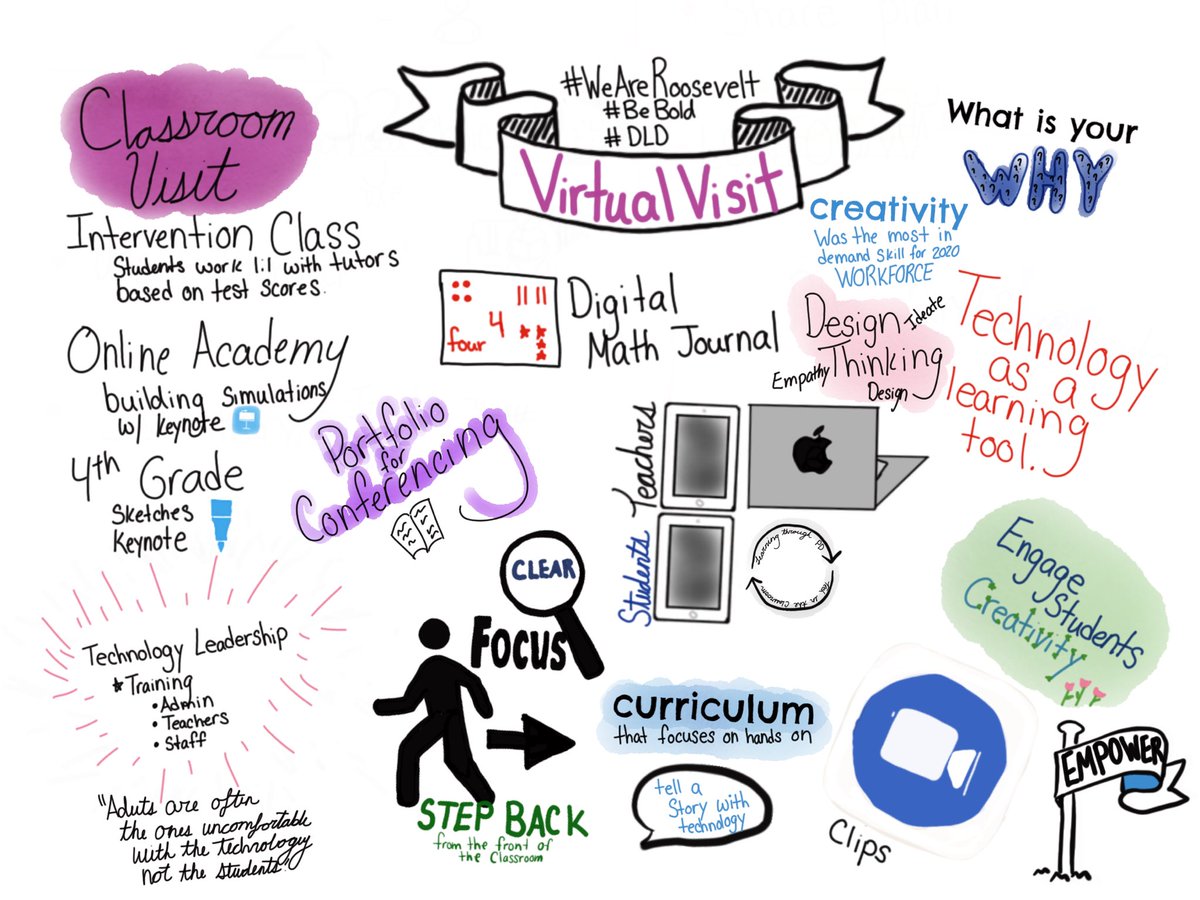 Classroom
Visit
Intervention Class
Students work 1:1 with tutors
based on test scores.
Online Academy
building simulations
w/ keynote
4th Grade
Sketches
Keynote
Technology Leadership
★ Training
• Admin
• Teachers
• Staff
"Aduts are often
the ones uncomfortable
with the technology
not the students."
#WeAreRoosevelt
#BeBold
#DLD
Virtual Visit
four 4
Digital
Math Journal
Portfolio
for
Conferencing
CLEAR
FOCUS
STEP BACK
from the front of
the Classroom
What is your
WHY
creativity
Was the most in
demand skill for 2020
WORKFORCE
Design
Ideate
Thinking
Empathy
Design
Technology
as a
learning
tool.
Teachers
Students
Learning through PD
in the classroom
curriculum
that focuses on hands on
tell a
Story with
technology
Clips
Engage
Students
Creativity
EMPOWER